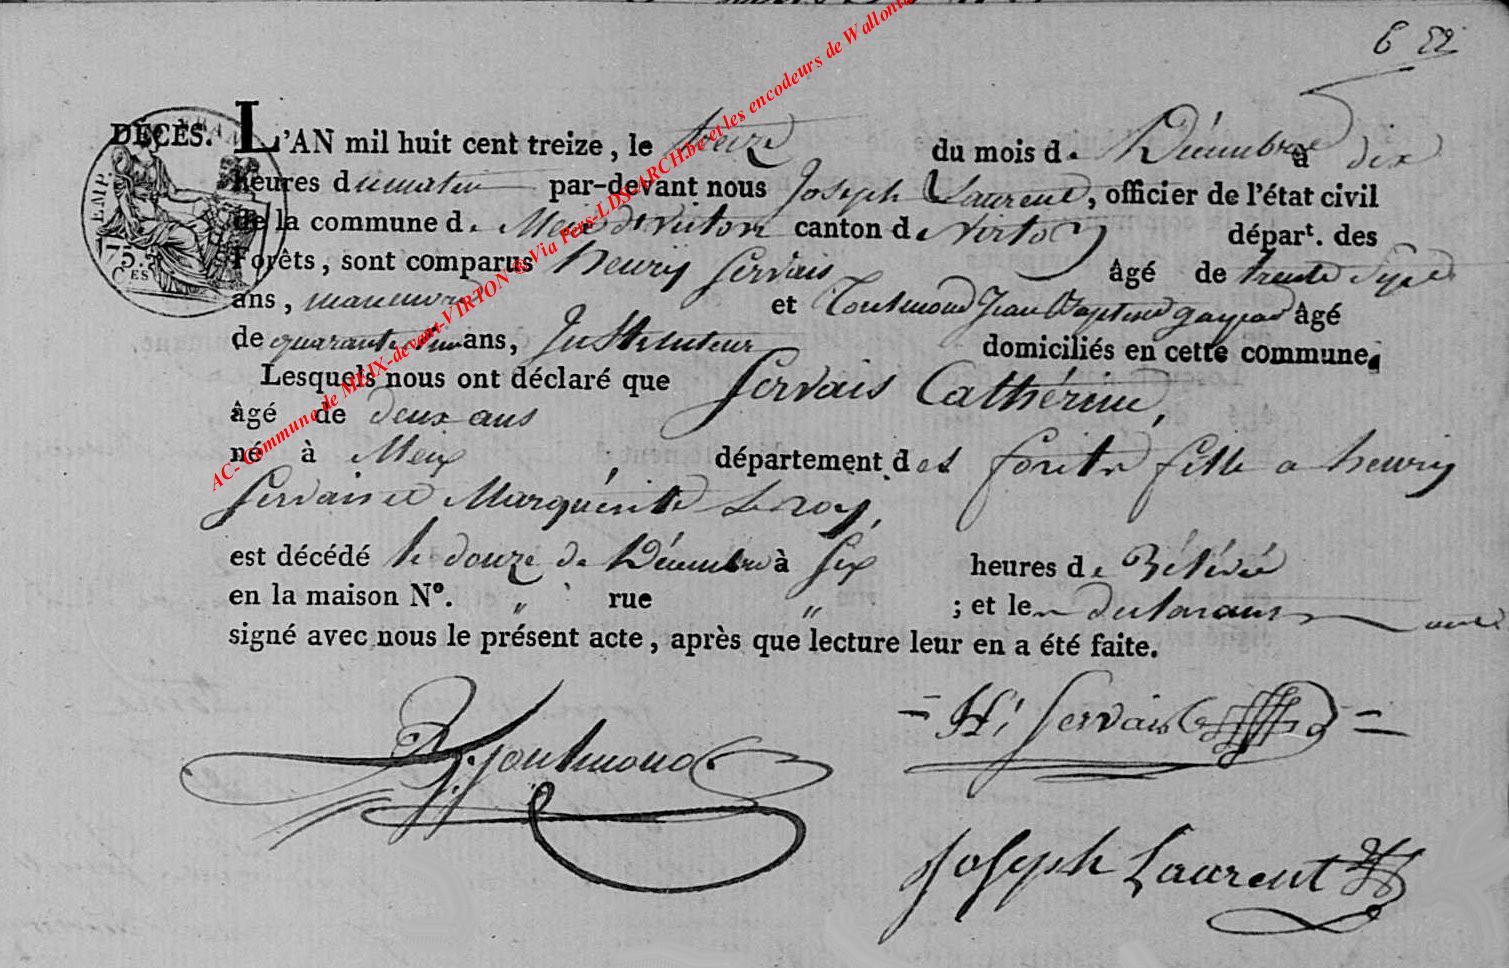 6 52
DÉCÈS. L'AN mil huit cent treize, le treize du mois de Décembre à dix
heures du matin par-devant nous Joseph Laurent, officier de l'état civil
de la commune de Meix dt Virton canton de Virton départ. des
Forêts, sont comparus henry Servais âgé de trente
ans, manuvre et Toutmond Jean Baptiste âgé
de quarante ans, Instituteur domiciliés en cette commune.
Lesquels nous ont déclaré que Servais Cathérine,
âgé de deux ans
né à Meix, département des forêts fille a henry
Servais et Marguérite Leroy,
est décédé le douze de Décembre à six heures de
en la maison No. " rue " ; et les declarans ont
signé avec nous le présent acte, après que lecture leur en a été faite.
= H Servais =
Toutmond
Joseph Laurent
EMP.
175.
CES
AC- Commune de MEIX-devant-VIRTON © Via Pers-LDS-ARCH.be et les encodeurs de Wallonie